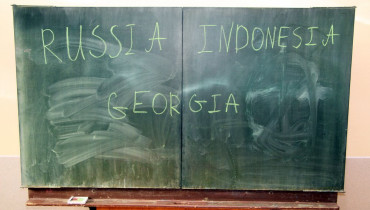 RUSSIA INDONESIA
GEORGIA